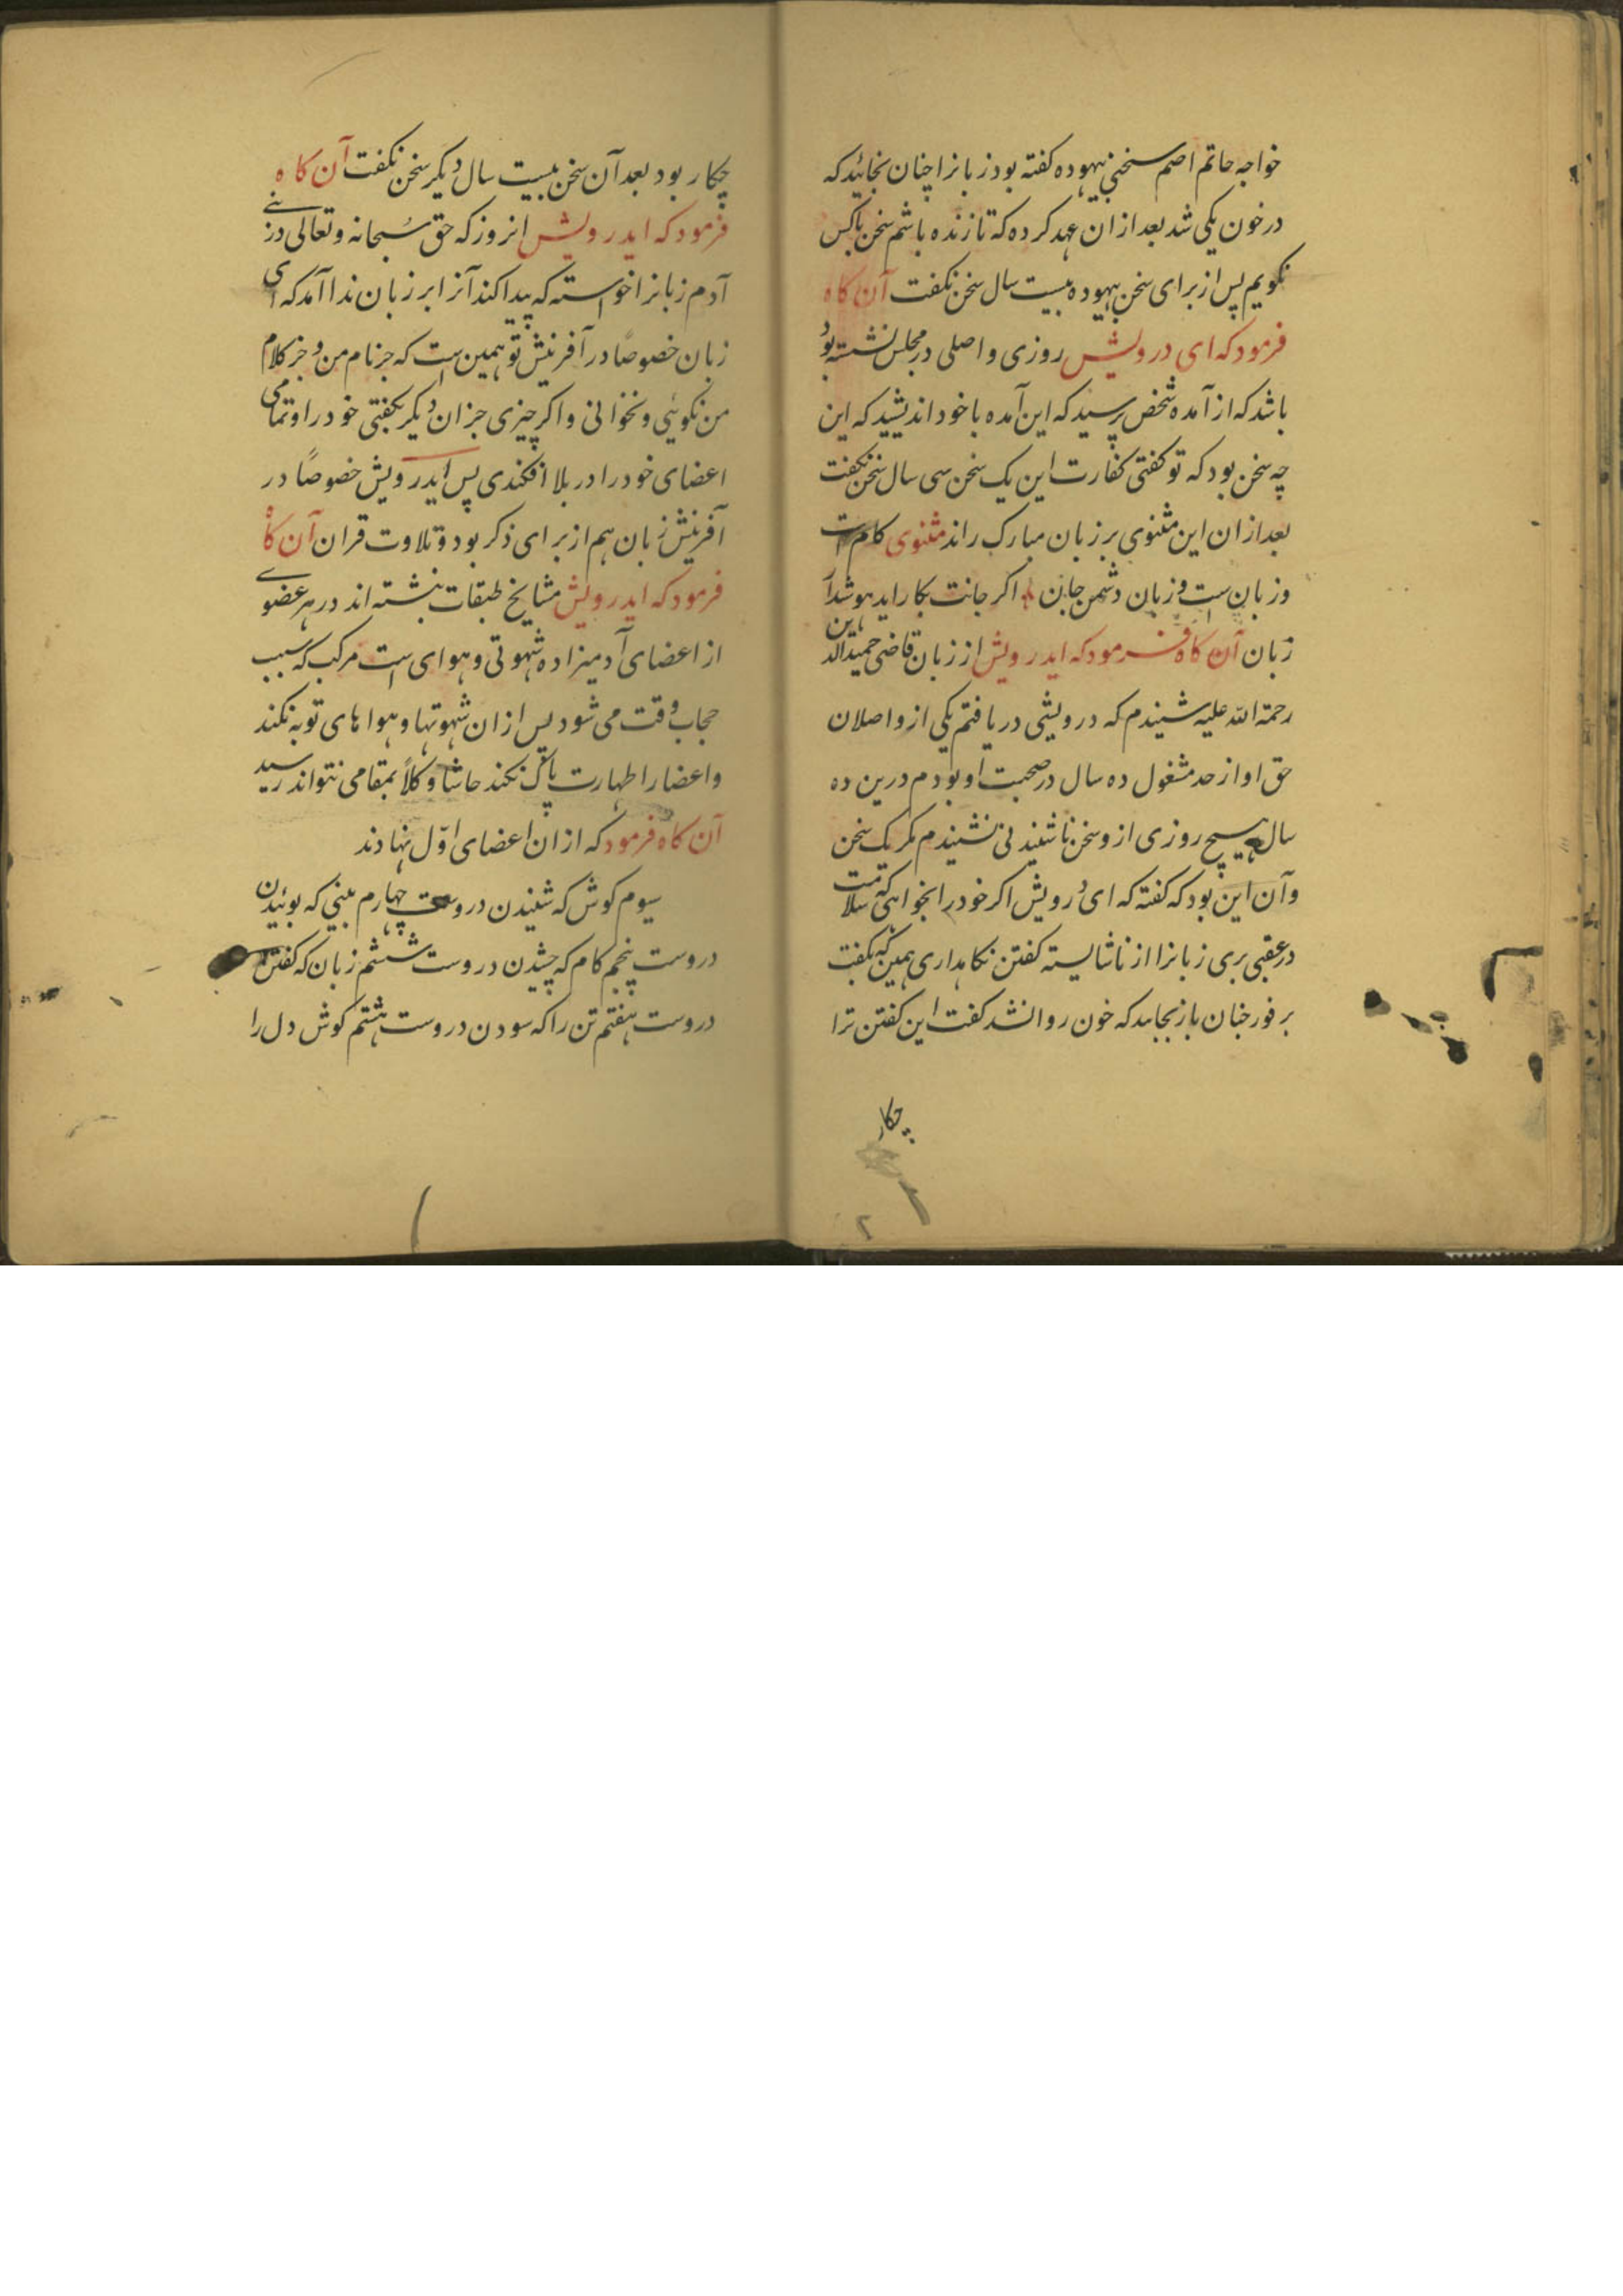 خواجه حاتم اصم سخنی بیهوده کفته بود زبانرا چنان بخائید که
در خون یکی شد بعد ازان عهد کرده که تا زنده باشم سخن باکس
نکویم پس از برای سخن بیهوده بیست سال سخن نکفت آن کاه
فرمود که ای درویش روزی واصلی در مجلس نشسته بود
باشد که از آمده شخص پرسید که این آمده با خود اندیشید که این
چه سخن بود که تو کفتی کفارت این یک سخن سی سال سخن نکفت
بعد ازان این مثنوی بر زبان مبارک راند مثنوی کام است
و زبان ست و زبان دشمن جان اکر جانت بکار اید هوشدار
زبان آن کاه فرمود که ایدرویش از زبان قاضی حمیدالدین
رحمة الله علیه شنیدم که درویشی دریافتم یکی از واصلان
حق او از حد مشغول ده سال در صحبت او بودم درین ده
سال هیچ روزی ازو سخن ناشنیدنی نشنیدم مکر یک سخن
و آن این بود که کفته که ای درویش اکر خود را بخواهی که سلامت
در عقبی بری زبانرا از ناشایسته کفتن نکاهداری همین که بکفت
بر فور چنان باز بخاید که خون روانشد کفت این کفتن ترا
چکار
چکار بود بعد آن سخن بیست سال دیکر سخن نکفت آن کاه
فرمود که ایدرویش انروز که حق سبحانه و تعالی در
آدم زبانرا خواسته که پیدا کند آنرا بر زبان ندا آمد که ای
زبان خصوصًا در آفرینش تو همین ست که جز نام من و جز کلام
من نکوئی و نخوانی و اکر چیزی جز ان دیکر بکفتی خود را و تمامی
اعضای خود را در بلا افکندی پس ایدرویش خصوصًا در
آفرینش زبان هم از برای ذکر بود و تلاوت قران آن کاه
فرمود که ایدرویش مشایخ طبقات نبشته اند در هر عضوے
از اعضای آدمیزاده شهوتی و هوای است مرکب که سبب
حجاب وقت می شود پس ازان شهوتها و هواهای توبه نکند
و اعضا را طهارت پاک نکند حاشا و کلاً بمقامی نتواند رسید
آن کاه فرمود که ازان اعضای اوّل نهادند
سیوم کوش که شنیدن دروست چهارم بینی که بوئیدن
دروست پنجم کام که چشیدن دروست ششم زبان که کفتن
دروست هفتم تن را که سودن دروست هشتم کوش دل را